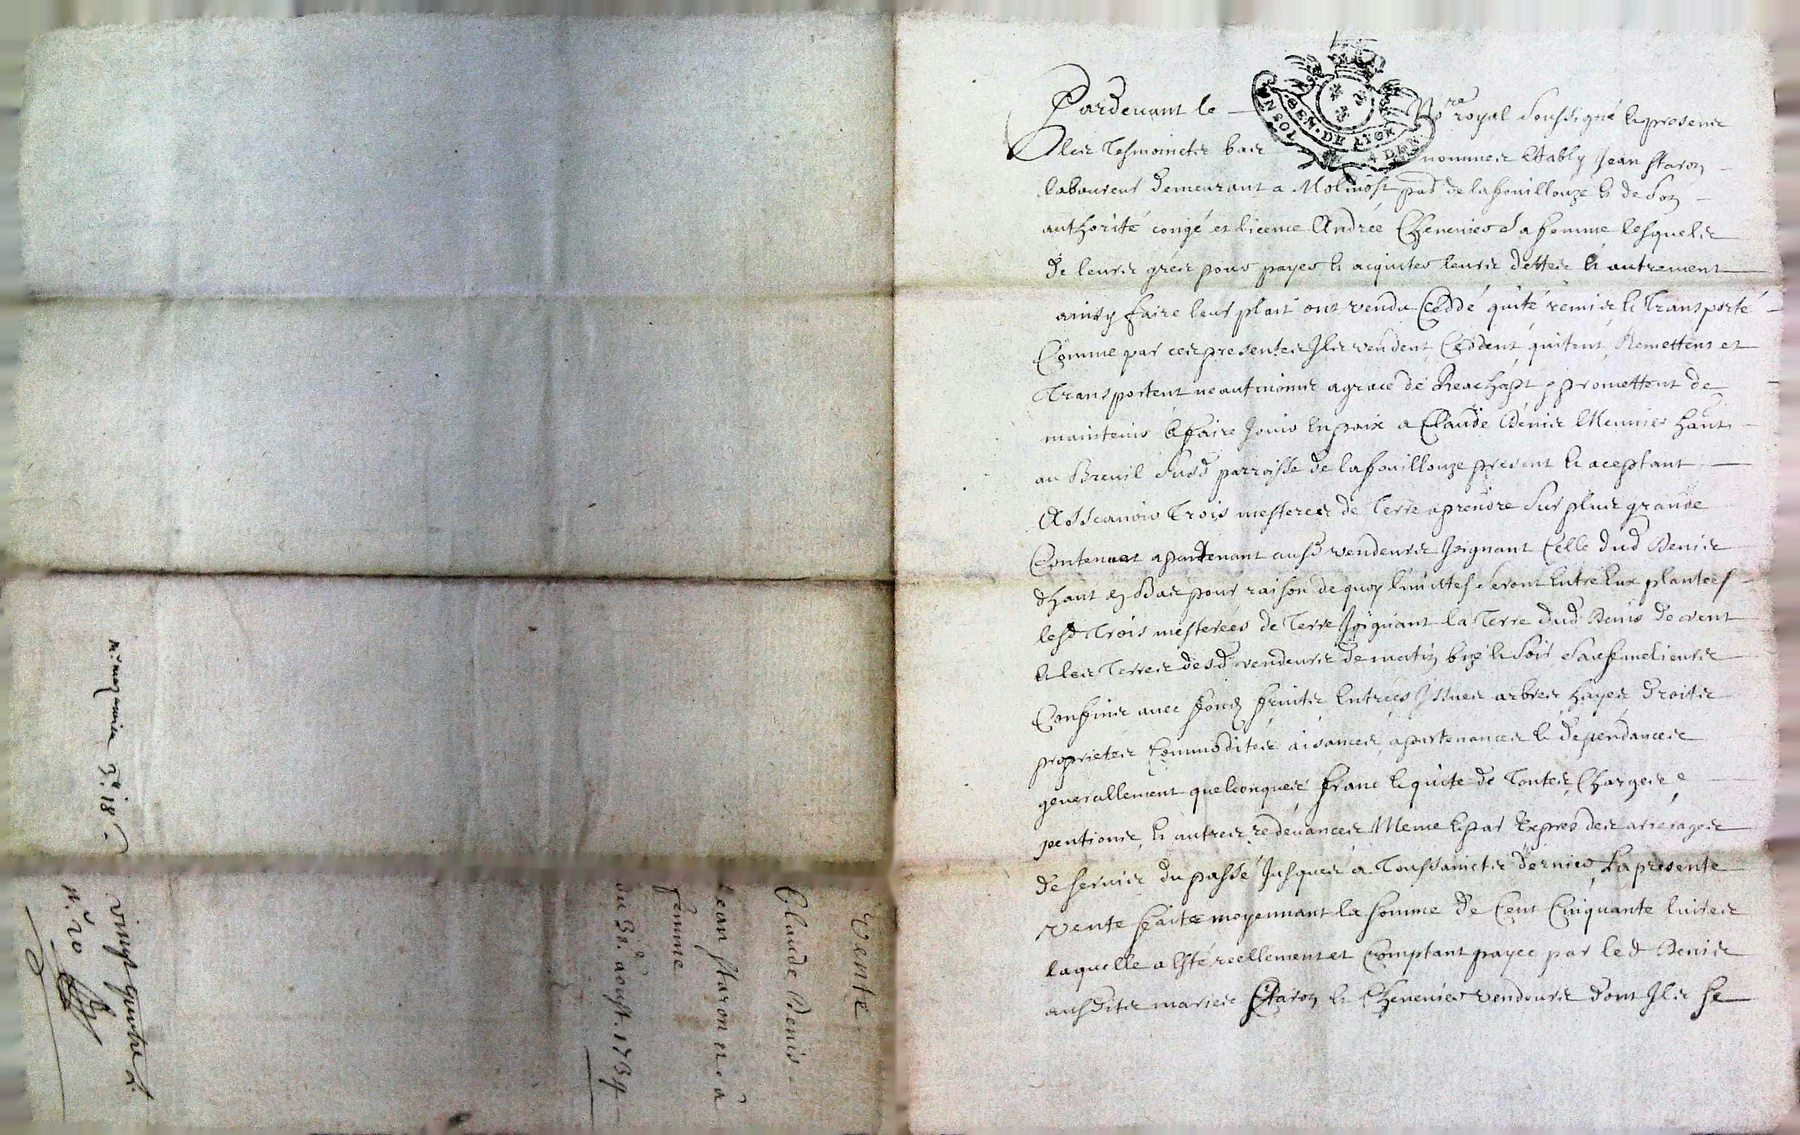 Pardevant le No.re royal soussigné & presens
les tesmoinctz bas nommes Estably Jean staron
laboureur demeurant a Molinost pad. de lafouillouze & de son
authorité congé et licence Andrée Chenevier sa femme lesquels
de leurs grés pour payer & aquiter leurs dettes & autrement
ainsy faire leur plait ont vendu Ceddé quité remis & transporté
Comme par ces presentes Ils vendent Cèdent quitent Remettent et
transportent neantmoins a grace de Reachapt promettent de
maintenir & faire Jouir En paix a Claude Denis Meunier hant
au Breuil susd parroisse de lafouillouze present & aceptant
Assavoir Trois mesterees de Terre a prendre sur plus grande
Contenant apartenant ausd vendeurs Joignant Celle dud Denis
dhaut en Bas pour raison de quoy limittes seront Entre Eux plantees
lesd Trois mesterees de Terre Joignant la Terre dud Denis de vent
& les Terres desd vendeurs de matin bize & soir sauf meilieurs
Confins avec fonds fruits Entrées Issues arbres hayes droits
proprietes Commodites aisances apartenances & dependances
generallement quelconques franc & quite de Toutes Charges
pentions, & autres redevances Meme & par Expres des arrerages
de servis du passé Jusques a Toussainctz dernier, La presente
vente faitte moyennant la somme de Cent Cinquante livres
laquelle a Esté reellement et Comptant payee par led Denis
ausdits maries Staron & Chenevier vendeurs dont Ils se
Vente
Claude Denis
Jean staron et à
femme
du 30.e aoust 1734
vingt quatre
n.o 20